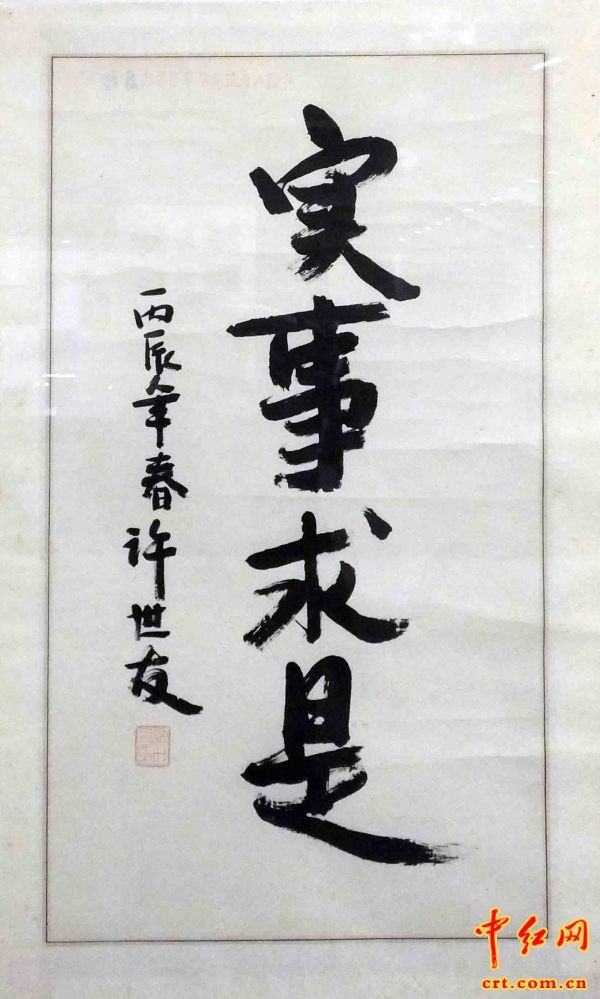 实事求是
丙辰年春许世友
中红网
crt.com.cn